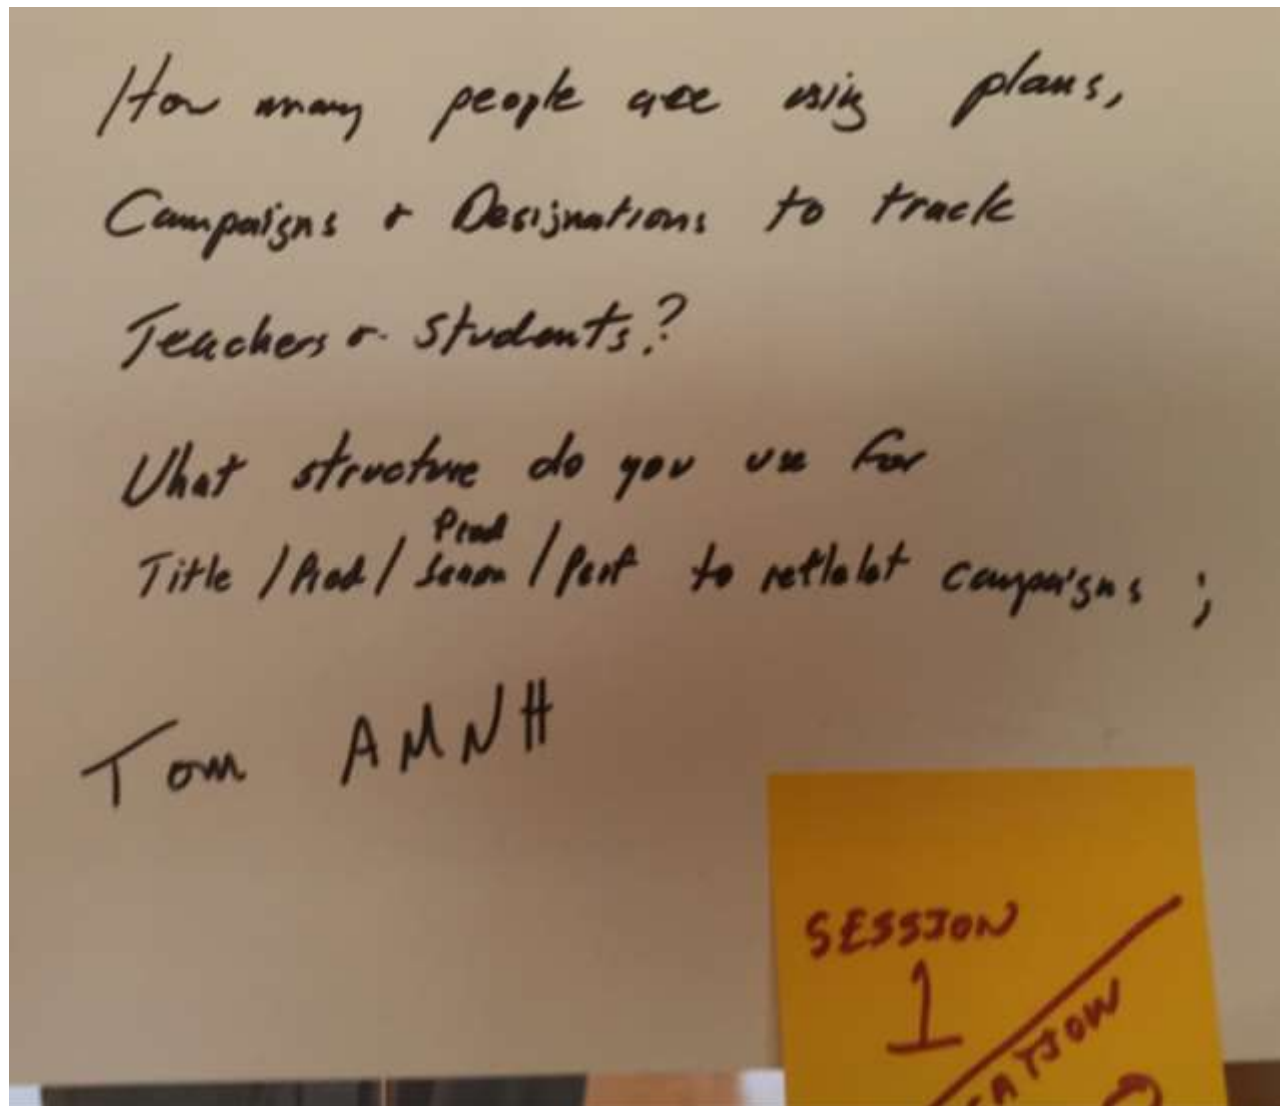 How many people are using plans,
Campaigns & Designations to track
Teachers or Students?
What structure do you use for
Title / Prod / Prod Season / Perf to campaigns ;
Tom AMNH
SESSION
1